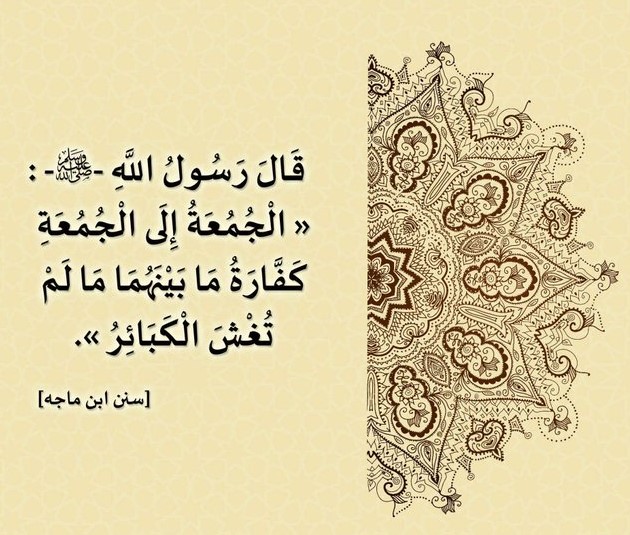 قَالَ رَسُولُ اللَّهِ -ﷺ- :
« الْجُمُعَةُ إِلَى الْجُمُعَةِ
كَفَّارَةُ مَا بَيْنَهُمَا مَا لَمْ
تُغْشَ الْكَبَائِرُ ».
[سنن ابن ماجه]